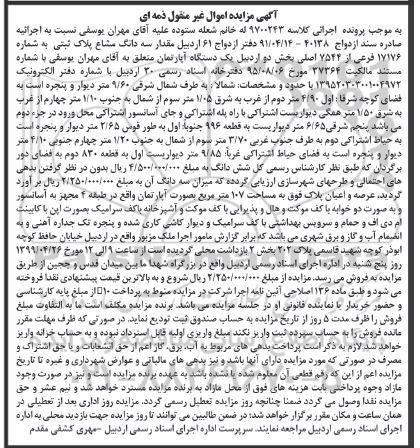 آگهی مزایده اموال غیر منقول ذمه ای
به موجب پرونده اجرائی کلاسه ۹۷۰۰۲۴۳ له خانم شعله ستوده علیه آقای مهران یوسفی نسبت به اجرائیه
صادره سند ازدواج ۴۰۱۳۸ - ۹۱/۰۴/۱۴ دفتر ازدواج ۶۱ اردبیل مقدار سه دانگ مشاع پلاک ثبتی به شماره
۱۷۱۷۶ فرعی از ۲۵۴۴ اصلی بخش دو اردبیل یک دستگاه آپارتمان متعلق به آقای مهران یوسفی با شماره
مستند مالکیت ۳۷۳۶۴ مورخ ۹۵/۰۸/۰۶ دفترخانه اسناد رسمی ۳۰ اردبیل با شماره دفتر الکترونیک
۱۳۹۵۲۰۳۰۳۰۰۱۰۰۴۹۷۲ با حدود و مشخصات: شمالا : به طرف شمال شرقی ۹/۶۰ متر دیوار و پنجره است به
فضای کوچه شرقا : اول ۴/۹۰ متر دوم از غرب به شرق ۱/۰۵ متر سوم از شمال به جنوب ۱/۱۰ متر چهارم از غرب
به شرق ۱/۵۰ متر همگی دیواریست اشتراکی با راه پله اشتراکی و جای آسانسور اشتراکی محل ورود در جزء دوم
می باشد پنجم شرقی ۶/۶۵ متر دیواریست به قطعه ۹۹۶ جنوبا: اول به طور قوس ۲/۶۵ متر دیوار و پنجره است
به حیاط اشتراکی دوم به طرف جنوب غربی ۳/۷۰ متر سوم از شمال به جنوب ۱/۲۰ متر چهارم جنوبی ۴/۱۰ متر
دیوار و پنجره است به فضای حیاط اشتراکی غربا: ۹/۸۵ متر دیواریست اول به قطعه ۸۳۰ دوم به فضای دور
برگردان که طبق نظر کارشناس رسمی کل شش دانگ به مبلغ ۴/۵۰۰/۰۰۰/۰۰۰ ریال بدون در نظر گرفتن بدهی
های احتمالی و طرحهای شهرسازی ارزیابی گردیده که میزان سه دانگ آن به مبلغ ۲/۲۵۰/۰۰۰/۰۰۰ ریال بر آورد
گردید، عرصه و اعیان پلاک فوق به مساحت ۱۰۷ متر مربع بصورت آپارتمان واقع در طبقه ۴ مجهز به آسانسور
و به صورت دو خوابه با کف موکت و هال و پذیرایی با کف موکت و آشپزخانه با کف سرامیک بصورت اپن با کابینت
ام دی اف و حمام و سرویس بهداشتی با کف سرامیک و دیوار کاشی کاری شده و پنجره تک جداره آهنی و به
انضمام آب و گاز و برق شهری می باشد که برابر گزارش مامور اجرا ملک مزبور واقع در اردبیل خیابان حافظ کوچه
ابوذر کوچه شهید قاسمی پلاک ۲۰۲ بخش ۲ بازداشت محلی گردیده است از ساعت ۹ الی ۱۲ مورخ ۱۳۹۹/۰۴/۲۶
روز پنج شنبه در اداره اجرای اسناد رسمی اردبیل واقع در بزرگراه شهدا ما بین میدان قدس و ججین از طریق
مزایده به فروش می رسد. مزایده از مبلغ ۲/۲۵۰/۰۰۰/۰۰۰ ریال شروع و به بالاترین قیمت پیشنهادی نقدا فروخته
می شود و طبق ماده ۱۳۶ اصلاحی آئین نامه اجرا شرکت در مزایده منوط به پرداخت ۱۰٪ از مبلغ پایه کارشناسی
و حضور خریدار یا نماینده قانونی او در جلسه مزایده می باشد. برنده مزایده مکلف است ما به التفاوت مبلغ
فروش را ظرف مدت ۵ روز از تاریخ مزایده به حساب صندوق ثبت تودیع نماید. در صورتی که ظرف مهلت مقرر
مانده فروش را به حساب سپرده ثبت واریز نکند مبلغ واریزی اولیه قابل استرداد نبوده و به حساب خزانه واریز
خواهد شد. لازم به ذکر است پرداخت بدهی های مربوط به آب، برق، گاز اعم از حق انشعابات و یا حق اشتراک و
مصرف در صورتی که مورد مزایده دارای آنها باشد و نیز بدهی های مالیاتی و عوارض شهرداری و غیره تا تاریخ
مزایده اعم از این که رقم قطعی آن معلوم شده یا نشده باشد به عهده برنده مزایده است و نیز در صورت وجود
مازاد وجوه پرداختی بابت هزینه های فوق از محل مازاد به برنده مزایده مسترد خواهد شد و نیم عشر و حق
مزایده نقدا وصول می گردد. ضمنا چنانچه روز مزایده تعطیل رسمی گردد. مزایده روز اداری بعد از تعطیلی در
همان ساعت و مکان مقرر برگزار خواهد شد؛ در ضمن طالبین می توانند تا روز مزایده جهت بازدید محلی به اداره
اجرای اسناد رسمی اردبیل مراجعه نمایند. سرپرست اداره اجرای اسناد رسمی اردبیل -مهری کشفی مقدم